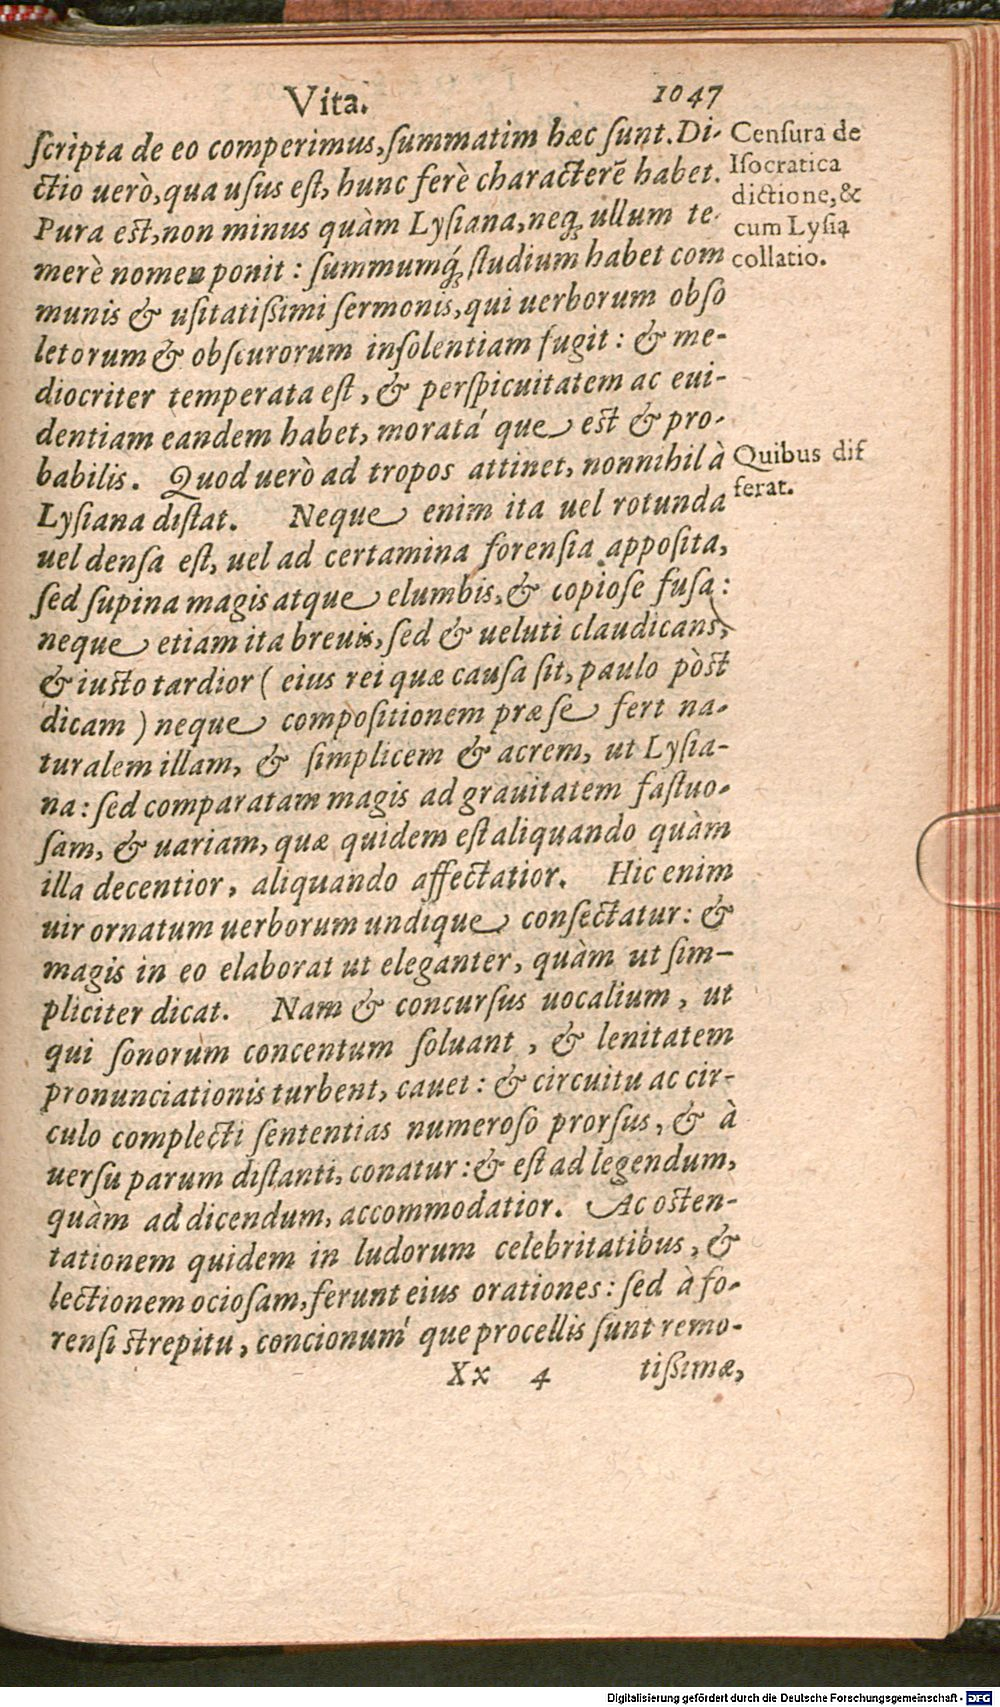 Vita. 1047
ſcripta de eo comperimus, ſummatim hæc ſunt. Di-
ctio uerò, qua uſus eſt, hunc ferè characterē habet.
Pura eſt, non minus quàm Lyſiana, neq; ullum te-
merè nomen ponit: ſummumq́; ſtudium habet com
munis & uſitatißimi ſermonis, qui uerborum obſo
letorum & obſcurorum inſolentiam fugit: & me-
diocriter temperata eſt, & perſpicuitatem ac eui-
dentiam eandem habet, moratá que eſt & pro-
babilis. Quod uerò ad tropos attinet, nonnihil à
Lyſiana diſtat. Neque enim ita uel rotunda
uel denſa eſt, uel ad certamina forenſia appoſita,
ſed ſupina magis atque elumbis, & copioſe fuſa:
neque etiam ita breuis, ſed & ueluti claudicans,
& iuſto tardior ( eius rei quæ cauſa ſit, paulo pòſt
dicam ) neque compoſitionem præ ſe fert na-
turalem illam, & ſimplicem & acrem, ut Lyſia-
na: ſed comparatam magis ad grauitatem faſtuo-
ſam, & uariam, quæ quidem eſt aliquando quàm
illa decentior, aliquando affectatior. Hic enim
uir ornatum uerborum undique conſectatur: &
magis in eo elaborat ut eleganter, quàm ut ſim-
pliciter dicat. Nam & concurſus uocalium, ut
qui ſonorum concentum ſoluant, & lenitatem
pronunciationis turbent, cauet: & circuitu ac cir-
culo complecti ſententias numeroſo prorſus, & à
uerſu parum diſtanti, conatur: & eſt ad legendum,
quàm ad dicendum, accommodatior. Ac oſten-
tationem quidem in ludorum celebritatibus, &
lectionem ocioſam, ferunt eius orationes: ſed à fo-
renſi ſtrepitu, concionum' que procellis ſunt remo-
Xx 4 tißimæ,
Cenſura de
Iſocratica
dictione, &
cum Lyſia
collatio.
Quibus dif
ferat.
Digitalisierung gefördert durch die Deutsche Forschungsgemeinschaft - DFG